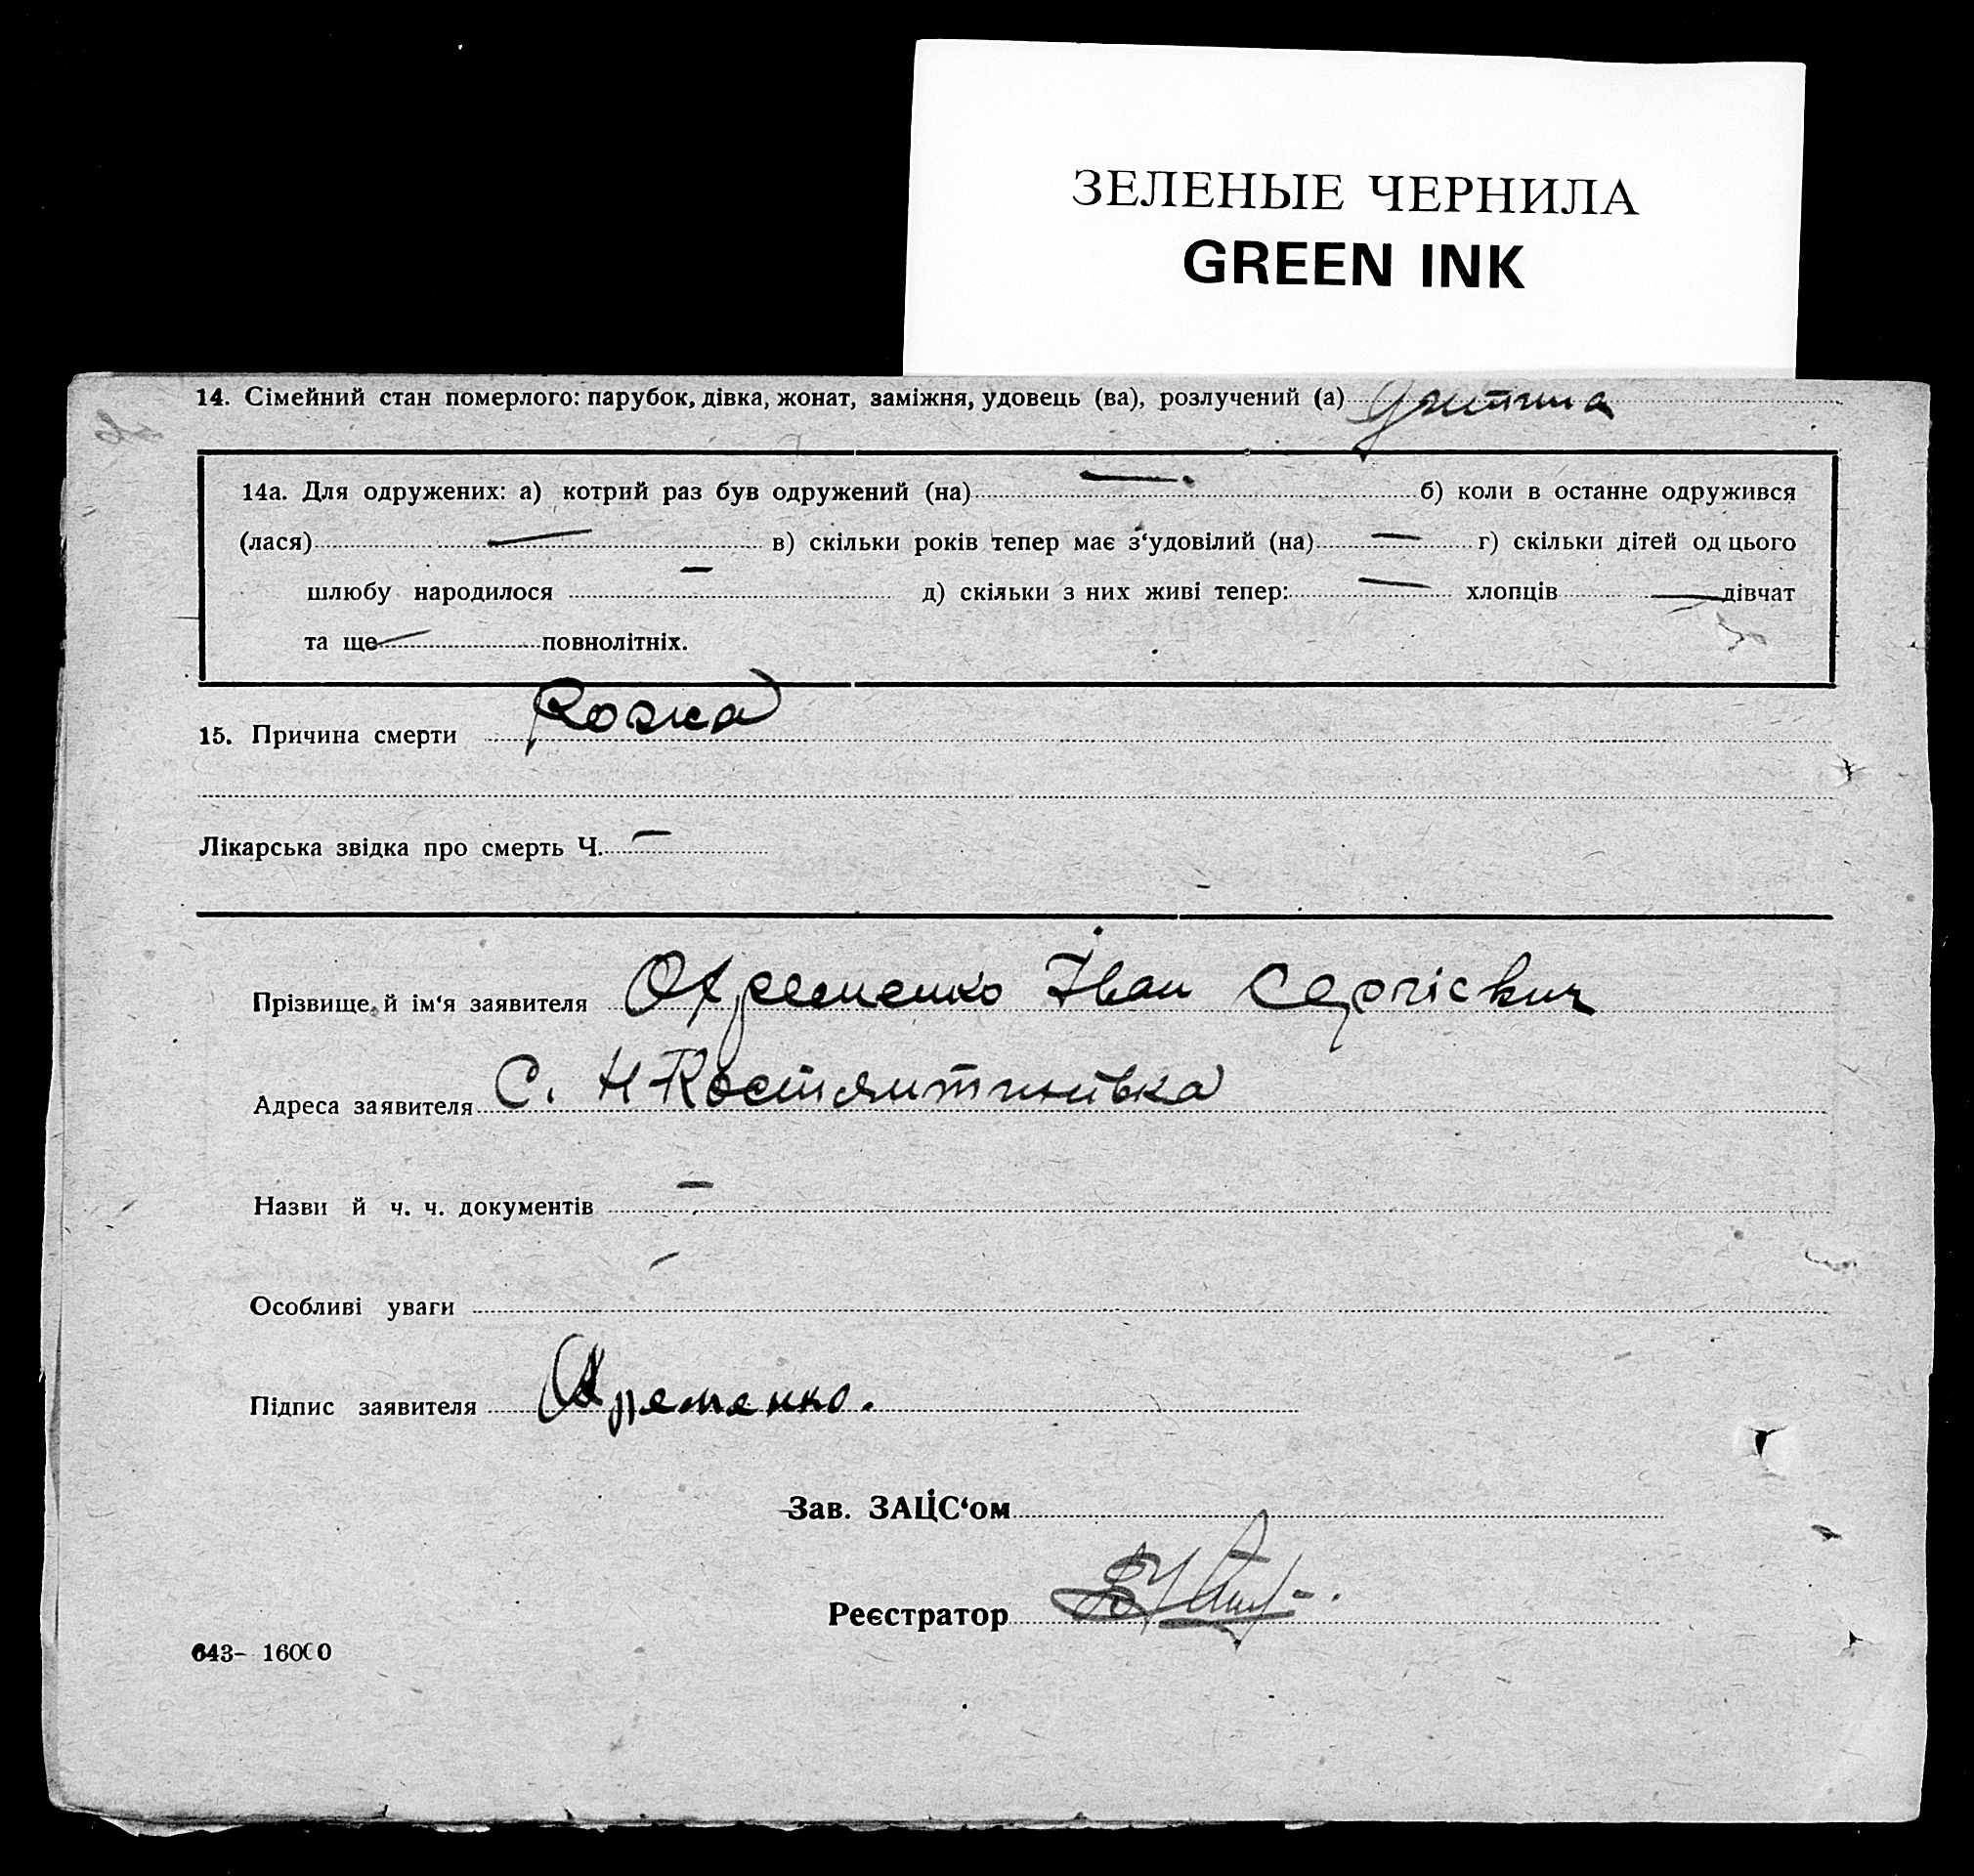 ЗЕЛЕНЫЕ ЧЕРНИЛА
GREEN INK
14. Сімейний стан померлого: парубок, дівка, жонат, заміжня, удовець (ва), розлучений (а) дитина
14а. Для одружених: а) котрий раз був одружений (на) — б) коли в останне одружився
(лася) — в) скільки років тепер має з‘удовілий (на) — г) скільки дітей од цього
шлюбу народилося — д) скільки з них живі тепер: — хлопців — дівчат
та ще — повнолітніх.
15. Причина смерти
Лікарська звідка про смерть Ч. —
Прізвище й ім‘я заявителя Охременко Іван Сергієвич
Адреса заявителя С. Н-Костянтинівка
Назви й ч. ч. документів —
Особливі уваги —
Підпис заявителя Охременко.
Зав. ЗАЦС‘ом
Реєстратор
643– 16000